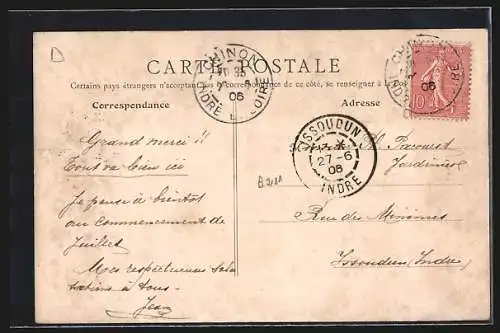 CARTE POSTALE
Certains pays étrangers n'acceptant pas la correspondance de ce côté, se renseigner à la
Correspondance
Adresse
CHINON
INDRE ET LOIRE
06
10
ISSOUDUN
27-6
06
INDRE
Grand merci !!
Tout va bien ici
Je pense à bientôt
au commencement de
Juillet
Mes respectueuses
à tous
Jean
Jardinier
Rue des Minimes
Issoudun (Indre)